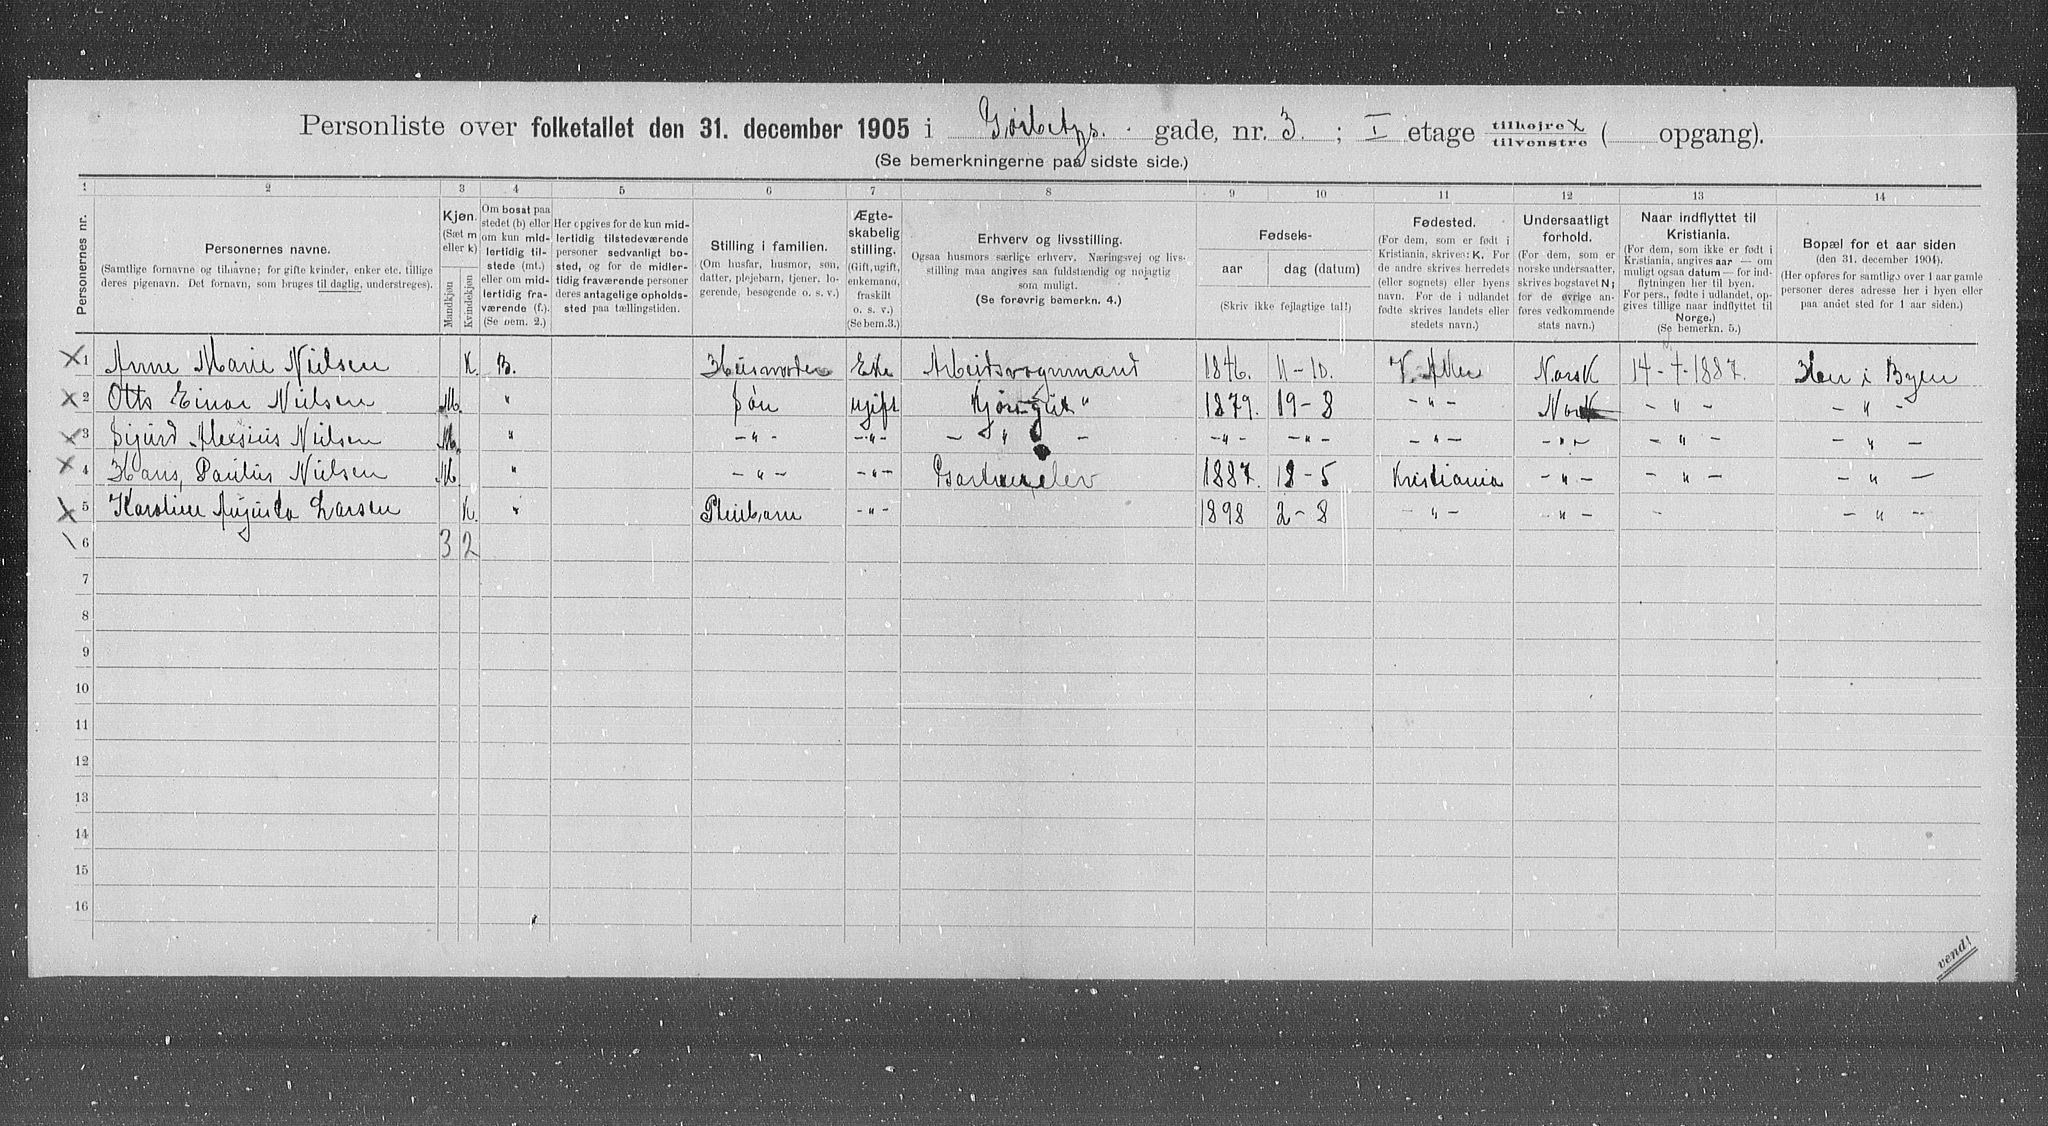 Personliste over folketallet den 31. december 1905 i Gørbitz gade, nr. 3 ; I etage tilhøjre X tilvenstre ( opgang).
(Se bemerkningerne paa sidste side.)
1 2 3 4 5 6 7 8 9 10 11 12 13 14
Personernes nr.
Personernes navne.
(Samtlige fornavne og tilnavne; for gifte kvinder, enker etc. tillige deres pigenavn. Det fornavn, som bruges til daglig, understreges).
Kjøn. (Sæt m eller k) Mandkjøn Kvindekjøn
Om bosat paa stedet (b) eller om kun midlertidig tilstede (mt.) eller om midlertidig fraværende (f.). (Se bem. 2.)
Her opgives for de kun midlertidig tilstedeværende personer sedvanlig bosted, og for de midlertidig fraværende personer deres antagelige opholdssted paa tællingstiden.
Stilling i familien.
(Om husfar, husmor, søn, datter, plejebarn, tjener, logerende, besøgende o. s. v.)
Ægteskabelig stilling.
(Gift, ugift, enkemand, fraskilt o. s. v.) (Se bem. 3.)
Erhverv og livsstilling.
Ogsaa husmors særlige erhverv. Næringsvej og livsstilling maa angives saa fuldstændig og nøjagtig som muligt.
(Se forøvrig bemerkn. 4.)
Fødsels-
aar dag (datum)
(Skriv ikke fejlagtige tal!)
Fødested.
(For dem, som er født i Kristiania, skrives: K. For de andre skrives herredets (eller sognets) eller byens navn. For de i udlandet fødte skrives landets eller stedets navn.)
Undersaatligt forhold.
(For dem, som er norske undersaatter, skrives bogstavet N; for de øvrige anføres vedkommende stats navn.)
Naar indflyttet til Kristiania.
(For dem, som ikke er født i Kristiania, angives aar — om muligt ogsaa datum — for indflytningen her til byen. For pers., fødte i udlandet, opgives tillige naar indflyttet til Norge.)
(Se bemerkn. 5.)
Bopæl for et aar siden
(den 31. december 1904).
(Her opføres for samtlige over 1 aar gamle personer deres adresse her i byen eller paa andet sted for 1 aar siden.)
X 1 Anne Marie Nielsen K. B. Husmoder Eke Arbeidsvognmand 1846. 11-10. V. Aker Norsk 14-4-1887. Her i Byen
X 2 Otto Einar Nielsen M. " Søn ugift Kjører " 1879. 19-8 - " - Norsk - " - - " -
X 3 Sigurd Alexsius Nielsen M. " - " - - " - - " - - " - - " - - " - - " - - " - - " -
X 4 Hans, Paulus Nielsen M. " - " - - " - 1887. 18-5 Kristiania - " - - " - - " -
X 5 Karoline Augusta Larsen K. " Pleiebarn - " - 1898 2-8 - " - - " - - - " -
\ 6 3 2
7
8
9
10
11
12
13
14
15
16
vend!